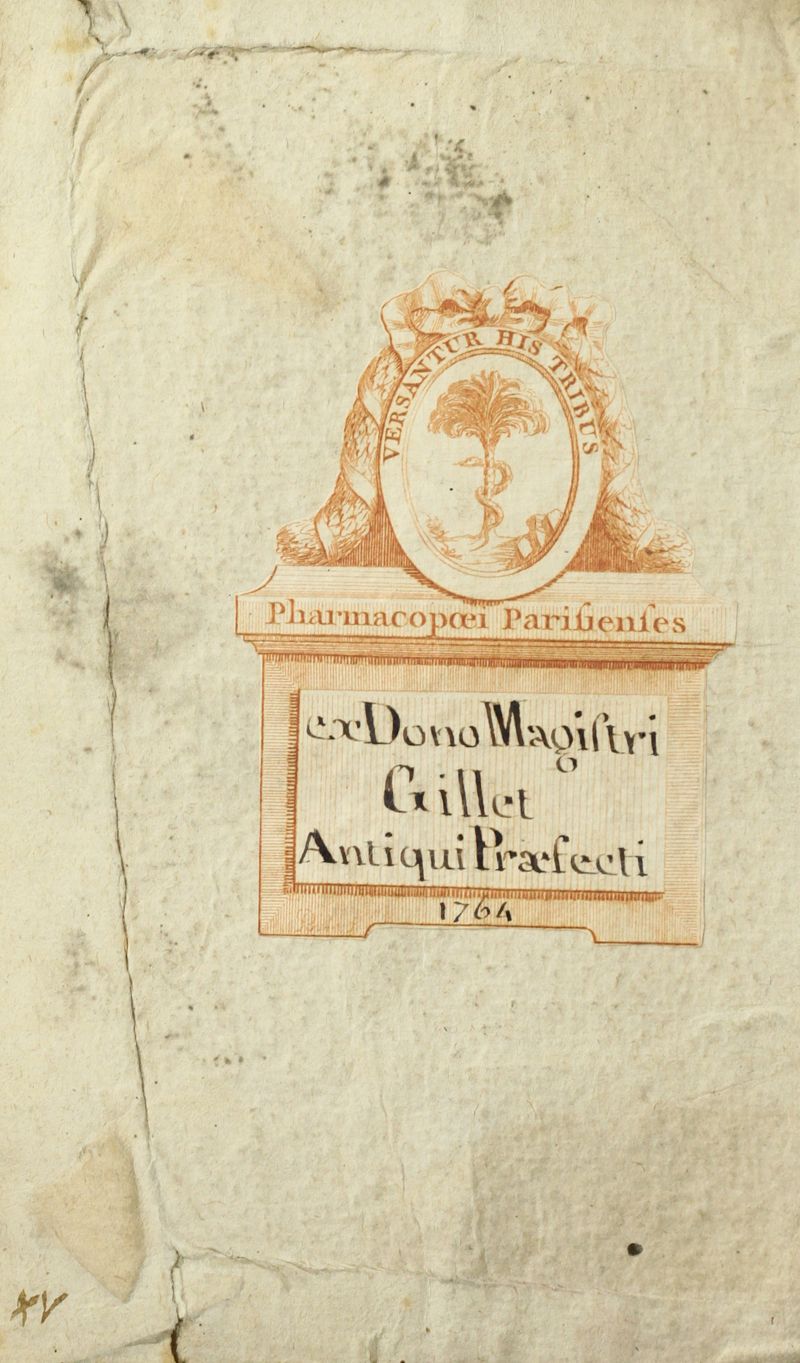 VERSANTUR HIS TRIBUS
Pharmacopœi Pariſienſes
ex Dono Magiſtri
Gillet
Antiqui Præfecti
1764
XV